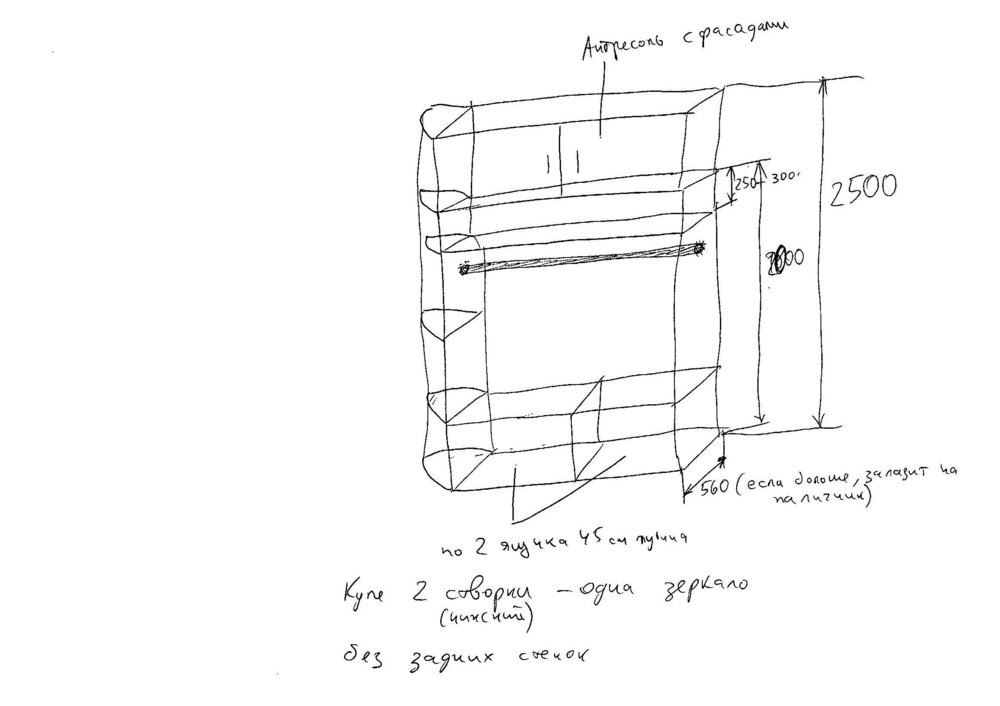 Антресоль с фасадами
250-300
2500
560 (если больше, залазит на
наличник)
по 2 ящика 45 см глубина
Купе 2 створки - одна зеркало
(нижний)
без задних стенок